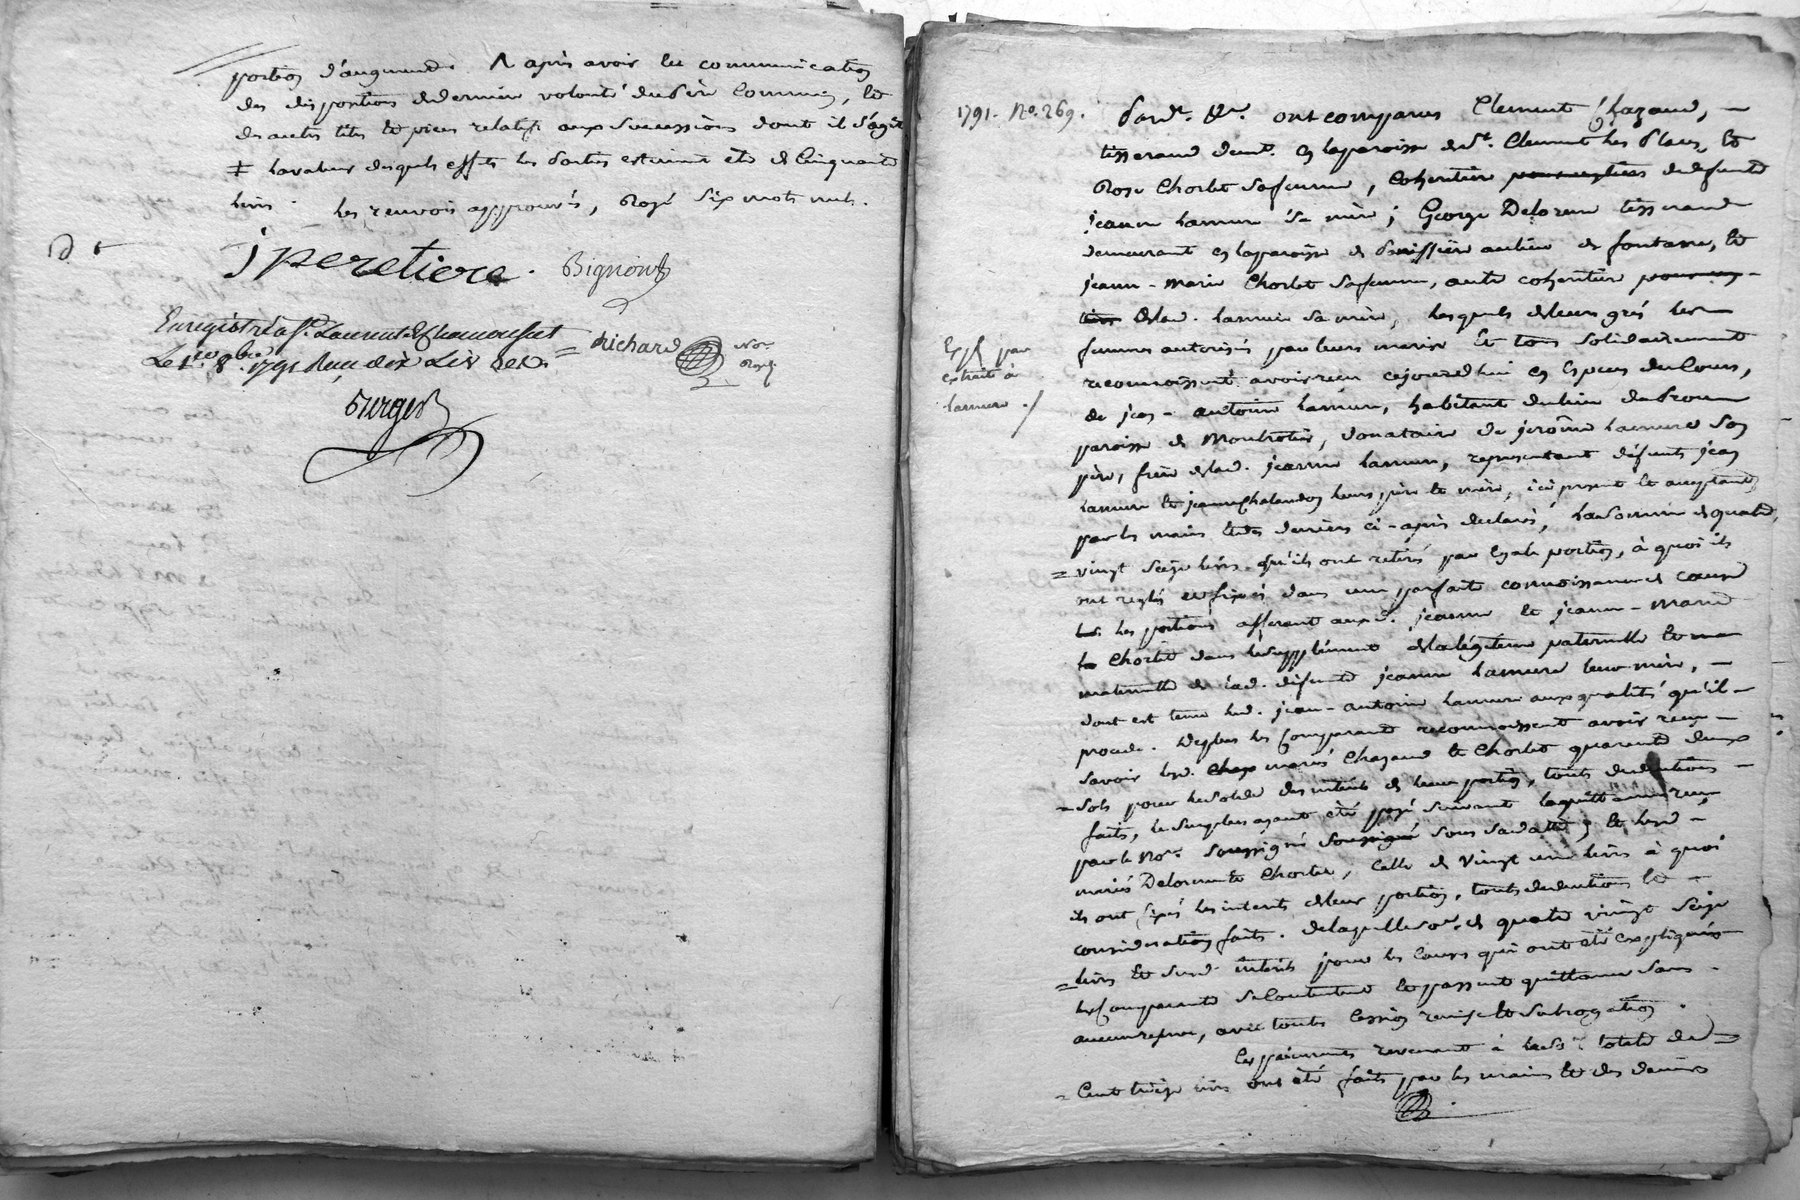 portion d'augmend. & après avoir eu communication
des dispositions de dernière volonté du père commun, et
des autres titres et pièces relatifs aux successions dont il s'agit
≠ la valeur desquels effets les parties estiment être de cinquante
livres. les renvois approuvés, rayé six mots nuls.
j peretiere. Bignon
Enregistré a St. Laurent de Chamousset
Le 1er 8bre 1791 Reçu dix Livres
richard Nore Royal
1791. No. 269. Pard. Nre. ont comparus Clement Chazaud,
tisserand demt. en la paroisse de St. Clement les Places, et
Rose Chorlet sa femme, cohéritière de defunte
jeanne lamure sa mère; George Delorme tisserand
demeurant en la paroisse de au lieu de fontanes, et
jeanne-marie Chorlet sa femme, autre cohéritière
de lad. lamure sa mère, lesquels de leurs grés les
femmes autorisées par leurs maris et tous solidairement
reconnoissent avoir reçu cejourd'hui en espèces de cours,
Expé par
extrait à
lamure ./
de jean-antoine lamure, habitant du lieu
paroisse de Montrotier, donataire de jerôme lamure son
père, frère de lad. jeanne lamure, representant défunts jean
lamure et jeanne Chalandon leurs père et mère, ici present et acceptant,
par les mains et des deniers ci-après declarés, la somme de quatre
= vingt seize livres qu'ils ont retirés par egale portion, à quoi ils
ont reglés et fixés dans une parfaite connoissance de cause
les portions afferant auxd. jeanne et jeanne-marie
Chorlet dans le supplément de la légitime paternelle et ma
maternelle de lad. défunte jeanne lamure leur mère,
dont est tenu led. jean-antoine lamure aux qualités qu'il
procede. De plus les comparants reconnoissent avoir reçu
savoir lesd. mariés Chazaud et Chorlet quarante deux
- sols pour le solde des intérêts de leur portion, toutes deductions
faites, le surplus ayant été payé suivant la quittance reçue
par le Nore. soussigné sous sa datte; et lesd.
mariés Delorme et Chorlet, celle de vingt une livres à quoi
ils ont fixés les interets de leur portion, toutes deductions et
considerations faites. de laquelle some. de quatre vingt seize
= livres et susd. intérêts pour les causes qui ont été expliquées
les comparants se contentent et passent quittance sans
aucune reserve, avec toutes cession remise et subrogation.
Les paiements revenant à la Se. totale de
- Cent treize livres ont été faits par les mains et des deniers